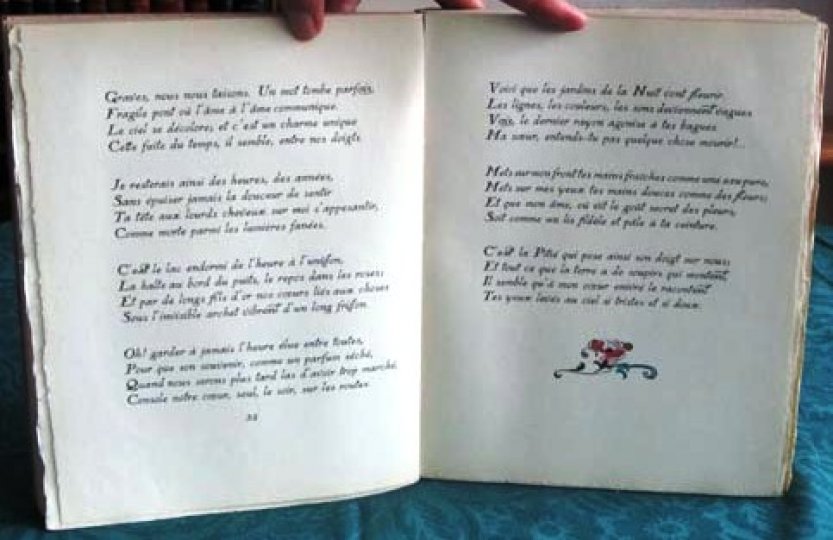 Graves, nous nous taisons. Un mot tombe parfois,
Fragile pont où l'âme à l'âme communique.
Le ciel se décolore; et c'est un charme unique
Cette fuite du temps, il semble, entre nos doigts.
Je resterais ainsi des heures, des années,
Sans épuiser jamais la douceur de sentir
Ta tête aux lourds cheveux sur moi s'appesantir,
Comme morte parmi les lumières fanées.
C'est le lac endormi de l'heure à l'unisson,
La halte au bord du puits, le repos dans les roses;
Et par de longs fils d'or nos cœurs liés aux choses
Sous l'invisible archet vibrent d'un long frisson.
Oh! garder à jamais l'heure élue entre toutes,
Pour que son souvenir, comme un parfum séché,
Quand nous serons plus tard las d'avoir trop marché,
Console notre cœur, seul, le soir, sur les routes.
Voici que les jardins de la Nuit vont fleurir.
Les lignes, les couleurs, les sons deviennent vagues.
Vois, le dernier rayon agonise à tes bagues.
Ma sœur, entends-tu pas quelque chose mourir!...
Mets sur mon front tes mains fraîches comme une eau pure,
Mets sur mes yeux tes mains douces comme des fleurs;
Et que mon âme, où vit le goût secret des pleurs,
Soit comme un lis fidèle et pâle à ta ceinture.
C'est la Pitié qui pose ainsi son doigt sur nous;
Et tout ce que la terre a de soupirs qui montent,
Il semble qu'à mon cœur enivré le racontent
Tes yeux levés au ciel si tristes et si doux.